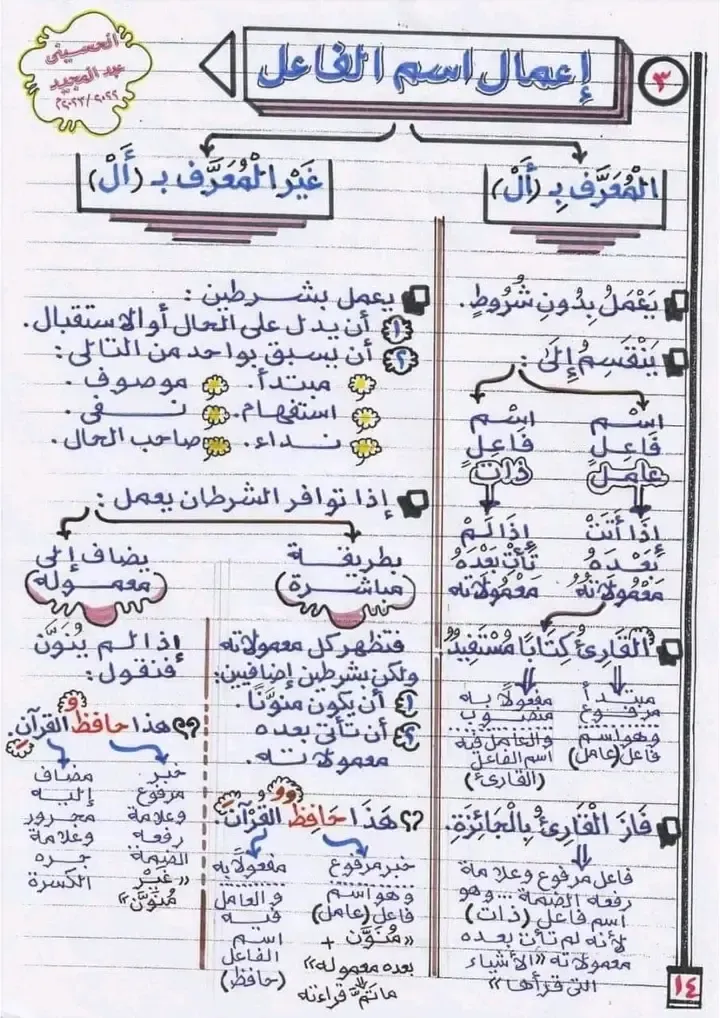 الحسيني
عبد المجيد
٢٠٢٢/٢٠٢٣م
٣
إعمال اسم الفاعل
المُعَرَّف بِـ (أَلْ)
غَيْر الْمُعَرَّف بـ (أَلْ)
يَعْمَلُ بِدُونِ شُرُوطٍ.
يَنْقَسِمُ إِلَىٰ :
اسْم
فَاعِلٍ
عامل
إِذَا أَتَتْ
بَعْدَهُ
مَعْمُولَاتهُ
اسْم
فَاعِلٍ
ذات
إِذَا لَمْ
تَأْتِ بَعْدَهُ
مَعْمُولَاته
الْقَارِئُ كِتَابًا مُسْتَفِيدٌ
مبتدأ
مرفوع
وهو اسم
فاعل (عامل)
مفعولًا به
منصوب
والعامل فيه
اسم الفاعل
(القارئ)
فَازَ الْقَارِئُ بِالْجَائِزَةِ.
فاعل مرفوع وعلامة
رفعه الضمة ... وهو
اسم فاعل (ذات)
لأنه لم تأتِ بعده
معمولاته «الأشياء
التي قرأها»
يعمل بشرطين :
١ أن يدل على الحال أو الاستقبال.
٢ أن يسبق بواحد من التالي :
مبتدأ. موصوف.
استفهام. نفى.
نداء. صاحب الحال.
إذا توافر الشرطان يعمل :
بطريقة
مباشرة
فتظهر كل معمولاته
ولكن بشرطين إضافيين:
١ أن يكون منوّنًا.
٢ أن تأتى بعده
معمولاته.
هَذَا حَافِظٌ الْقُرْآنَ.
خبر مرفوع
وهو اسم
فاعل (عامل)
«مُنَوَّن +
بعده معموله»
ما تمَّ قراءته
مفعولًا به
والعامل
فيه
اسم
الفاعل
(حافظ)
يضاف إلى
معموله
إذا لم يُنَوَّن
فنقول :
هذا حافظُ القرآنِ.
خبر
مرفوع
وعلامة
رفعه
الضمة
«غَيْر
مُنوَّن»
مضاف
إليه
مجرور
وعلامة
جره
الكسرة
١٤